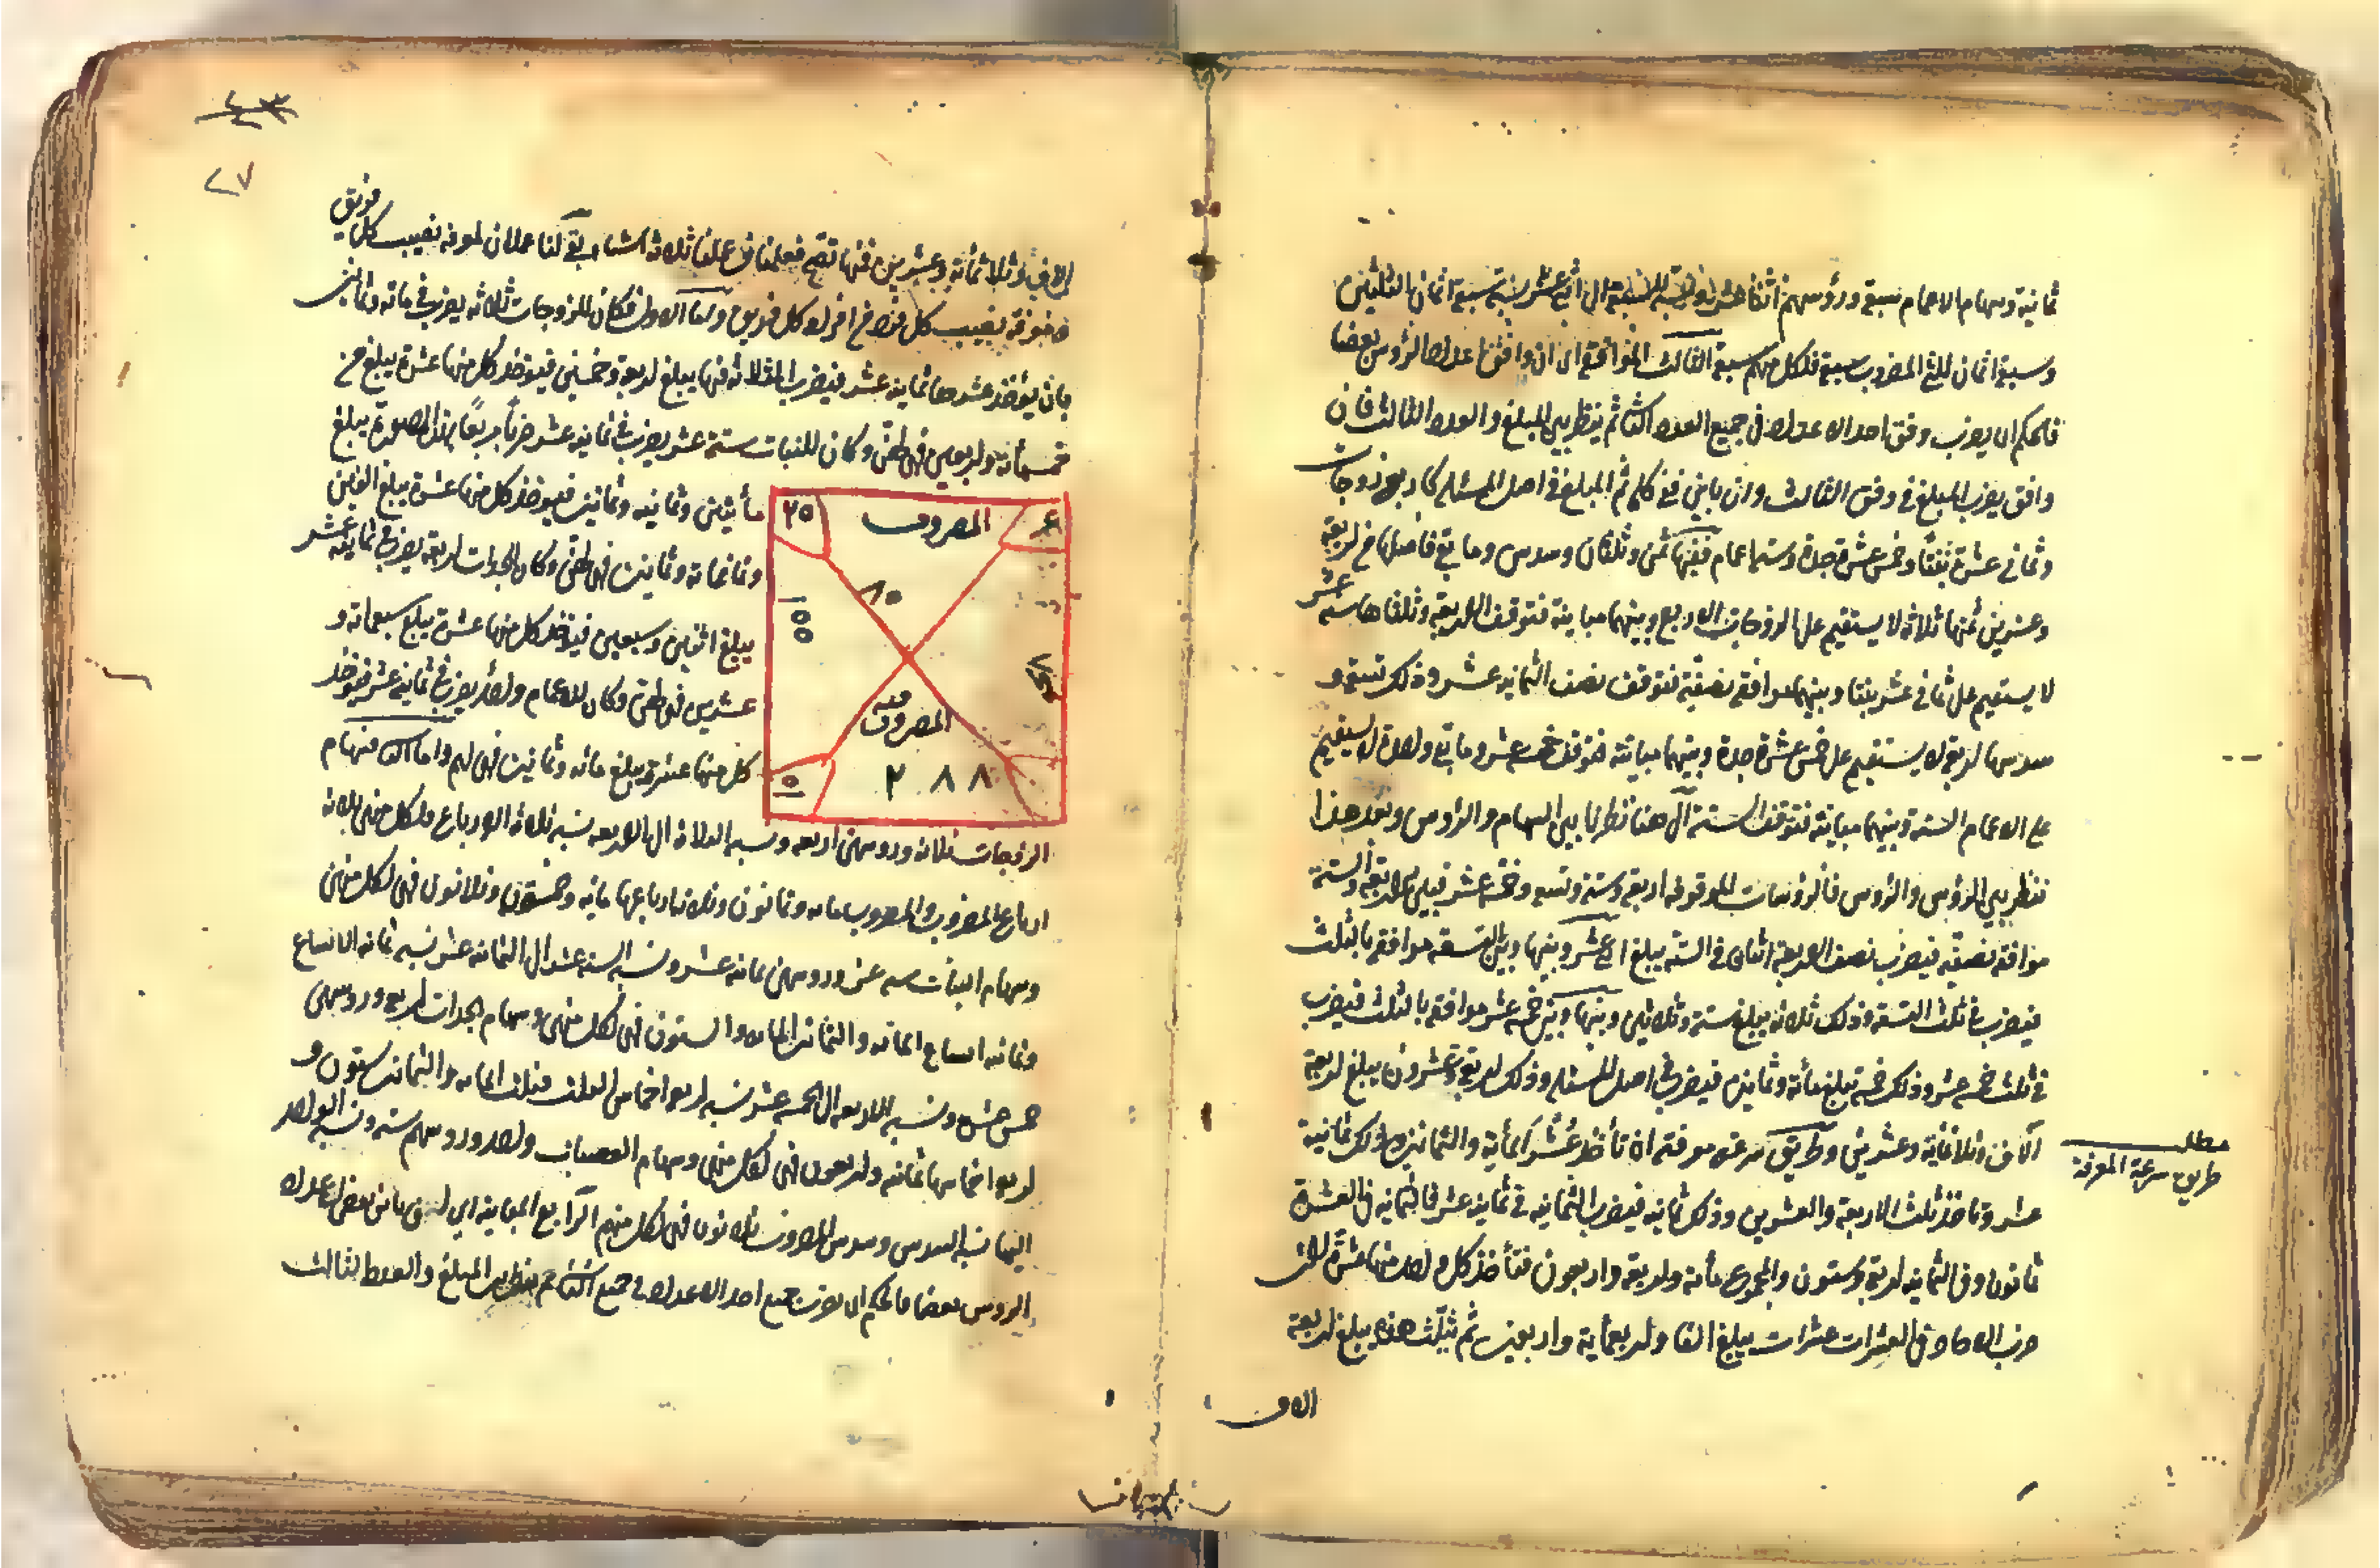 ثمانية وسهام الاعمام سبعة ورؤسهم اثنا عشر ونسبة السبعة الى اثني عشر نسبة سبعة اثمان الثلثين
وسبعة اثمان للثلثي المضروب سبعة فلكل منهم سبعة الثالث الموافقة اى ان وافق اعداد الرؤس بعضا
فالحكم ان يضرب وفق احد الاعداد فى جميع العدد الثانى ثم ينظر بين المبلغ والعدد الثالث فان
وافق يضرب المبلغ فى وفق الثالث وان باين ففى كله ثم المبلغ فى اصل المسئلة كاربع زوجات
وثمانى عشرة بنتا وخمس عشرة جدة وستة اعمام ففيها ثمن وثلثان وسدس وما بقى فاصلها من اربعة
وعشرين ثمنها ثلاثة لا يستقيم على الزوجات الاربع وبينهما مباينة فتوقف الاربعة وثلثاها ستة عشر
لا يستقيم على ثمانى عشر بنتا وبينهما موافقة نصفية فتوقف نصف الثمانية عشر وذلك تسعة و
سدسها اربعة لا يستقيم على خمس عشرة جدة وبينهما مباينة فتوقف خمسة عشر وما بقى واحد لا يستقيم
على الاعمام الستة وبينهما مباينة فتوقف الستة الى هنا نظرنا بين السهام والرؤس وبعد هذا
ننظر بين الرؤس والرؤس فالرؤسات الموقوفة اربعة وستة وتسعة وخمسة عشر فبين الاربعة والستة
موافقة نصفية فيضرب نصف الاربعة اثنان فى الستة يبلغ اثنى عشر وبينها وبين التسعة موافقة بالثلث
فيضرب فى ثلث التسعة وذلك ثلاثة يبلغ ستة وثلاثين وبينها وبين خمسة عشر موافقة بالثلث فيضرب
فى ثلث خمسة عشر وذلك خمسة يبلغ مأة وثمانين فيضرب فى اصل المسئلة وذلك اربعة وعشرون يبلغ اربعة
آلاف وثلاثمأية وعشرين وطريق سرعة معرفته ان تأخذ عشر المأية والثمانين وذلك ثمانية
عشر وتأخذ ثلث الاربعة والعشرين وذلك ثمانية فيضرب الثمانية فى ثمانية عشر فالثمانية فى العشرة
ثمانون وفى الثمانية اربعة وستون والمجموع مأة واربعة واربعون فتأخذ كل واحد منها عشرة لان
ضرب الاحاد فى العشرات عشرات يبلغ الفا واربعمأية واربعين ثم تثلث هذه يبلغ اربعة
الاف
مطلب
طريق سرعة المعرفة
٢٧
الاف وثلاثمأة وعشرين فمنها تصح فعلمنا فى عملنا ثلاثة اشياء بقى لنا عملان لمعرفة نصيب كل فريق
ومعرفة نصيب كل فرد من افراد كل فريق واما الاول فكان للزوجات ثلاثة يضرب فى مائة وثمانين
بان يؤخذ عشرها ثمانية عشر فيضرب الثلاثة فيها يبلغ اربعة وخمسين فيؤخذ كل منها عشرة يبلغ خمـ
خمسمأة واربعين فهى لهن وكان للبنات ستة عشر يضرب فى ثمانية عشر ضربا مربعا بهذه الصورة يبلغ
مأتين وثمانية وثمانين فيؤخذ كل منها عشرة يبلغ الفين
وثمانمائة وثمانين فهى لهن وكان للجدات اربعة يضرب فى ثمانية عشر
يبلغ اثنين وسبعين فيؤخذ كل منها عشرة يبلغ سبعمائة و
عشرين فهى لهن وكان للاعمام واحد يضرب فى ثمانية عشر فيؤخذ
كل منها عشرة يبلغ مائة وثمانين فهى لهم واما الثانى فسهام
المضروب
المضروب فيه
١٠٠
٢٨٨
الزوجات ثلاثة ورؤسهن اربعة ونسبة الثلاثة الى الاربعة نسبة ثلاثة الارباع فلكل منهن ثلاثة
ارباع المضروب والمضروب مائة وثمانون وثلاثة ارباعها مائة وخمسة وثلاثون فهى لكل منهن
وسهام البنات ستة عشر ورؤسهن ثمانية عشر ونسبة الستة عشر الى الثمانية عشر نسبة ثمانية الاتساع
وثمانية اتساع المائة والثمانين المائة والستون فهى لكل منهن وسهام الجدات اربعة ورؤسهن
خمس عشر ونسبة الاربعة الى الخمسة عشر نسبة اربعة اخماس الثلث فثلث المائة والثمانين ستون و
اربعة اخماسها ثمانية واربعون فهى لكل منهن وسهام العصبات واحد ورؤسهم ستة ونسبة الواحد
اليها نسبة السدس وسدس المضروب ثلاثون فهى لكل منهم الرابع المباينة اى ان باين بعض اعداد
الرؤس بعضا فالحكم ان يضرب جميع احد الاعداد فى جميع الثانى ثم ينظر بين المبلغ والعدد الثالث